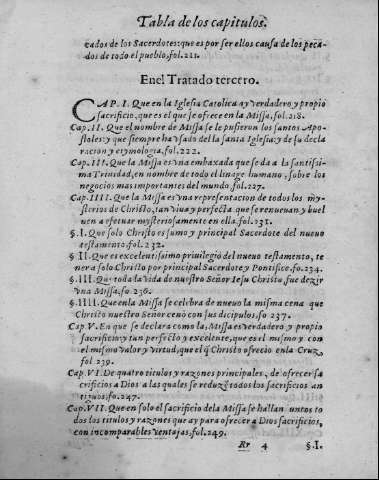 Tabla de los capitulos.
cados de los Sacerdotes: que es por ser ellos causa de los peca-
dos de todo el pueblo, fol. 211.
En el Tratado tercero.
CAP. I. Que en la Iglesia Catolica ay verdadero y propio
sacrificio, que es el que se ofrece en la Missa, fol. 218.
Cap. II. Que el nombre de Missa se le pusieron los santos Apo-
stoles: y que siempre ha vsado del la santa Iglesia: y de su decla
racion y etymologia, fol. 222.
Cap. III. Que la Missa es vna embaxada que se da a la santissi-
ma Trinidad, en nombre de todo el linage humano, sobre los
negocios mas importantes del mundo, fol. 227.
Cap. IIII. Que la Missa es vna representacion de todos los my-
sterios de Christo, tan viua y perfecta que se renueuan y buel
uen a efetuar mysteriosamente en ella. fol. 231.
§. I. Que solo Christo es sumo y principal Sacerdote del nueuo
testamento, fol. 232.
§. II. Que es excelentissimo priuilegio del nueuo testamento, te
ner a solo Christo por principal Sacerdote y Pontifice. fo. 234.
§. III. Que toda la vida de nuestro Señor Iesu Christo fue dezir
vna Missa, fo. 236.
§. IIII. Que en la Missa se celebra de nueuo la misma cena que
Christo nuestro Señor cenò con sus dicipulos, fo 237.
Cap. V. En que se declara como la Missa es verdadero y propio
sacrificio y tan perfecto y excelente, que es el mismo y con
el mismo valor y virtud, que el q̃ Christo ofrecio en la Cruz,
fol. 239.
Cap. VI. De quatro titulos y razones principales, de ofrecer sa
crificios a Dios a las quales se reduzē todos los sacrificios an
tiguos, fo. 247.
Cap. VII. Que en solo el sacrificio de la Missa se hallan juntos to
dos los titulos y razones que ay para ofrecer a Dios sacrificios,
con incomparables ventajas, fol. 249.
Rr 4 §. I.